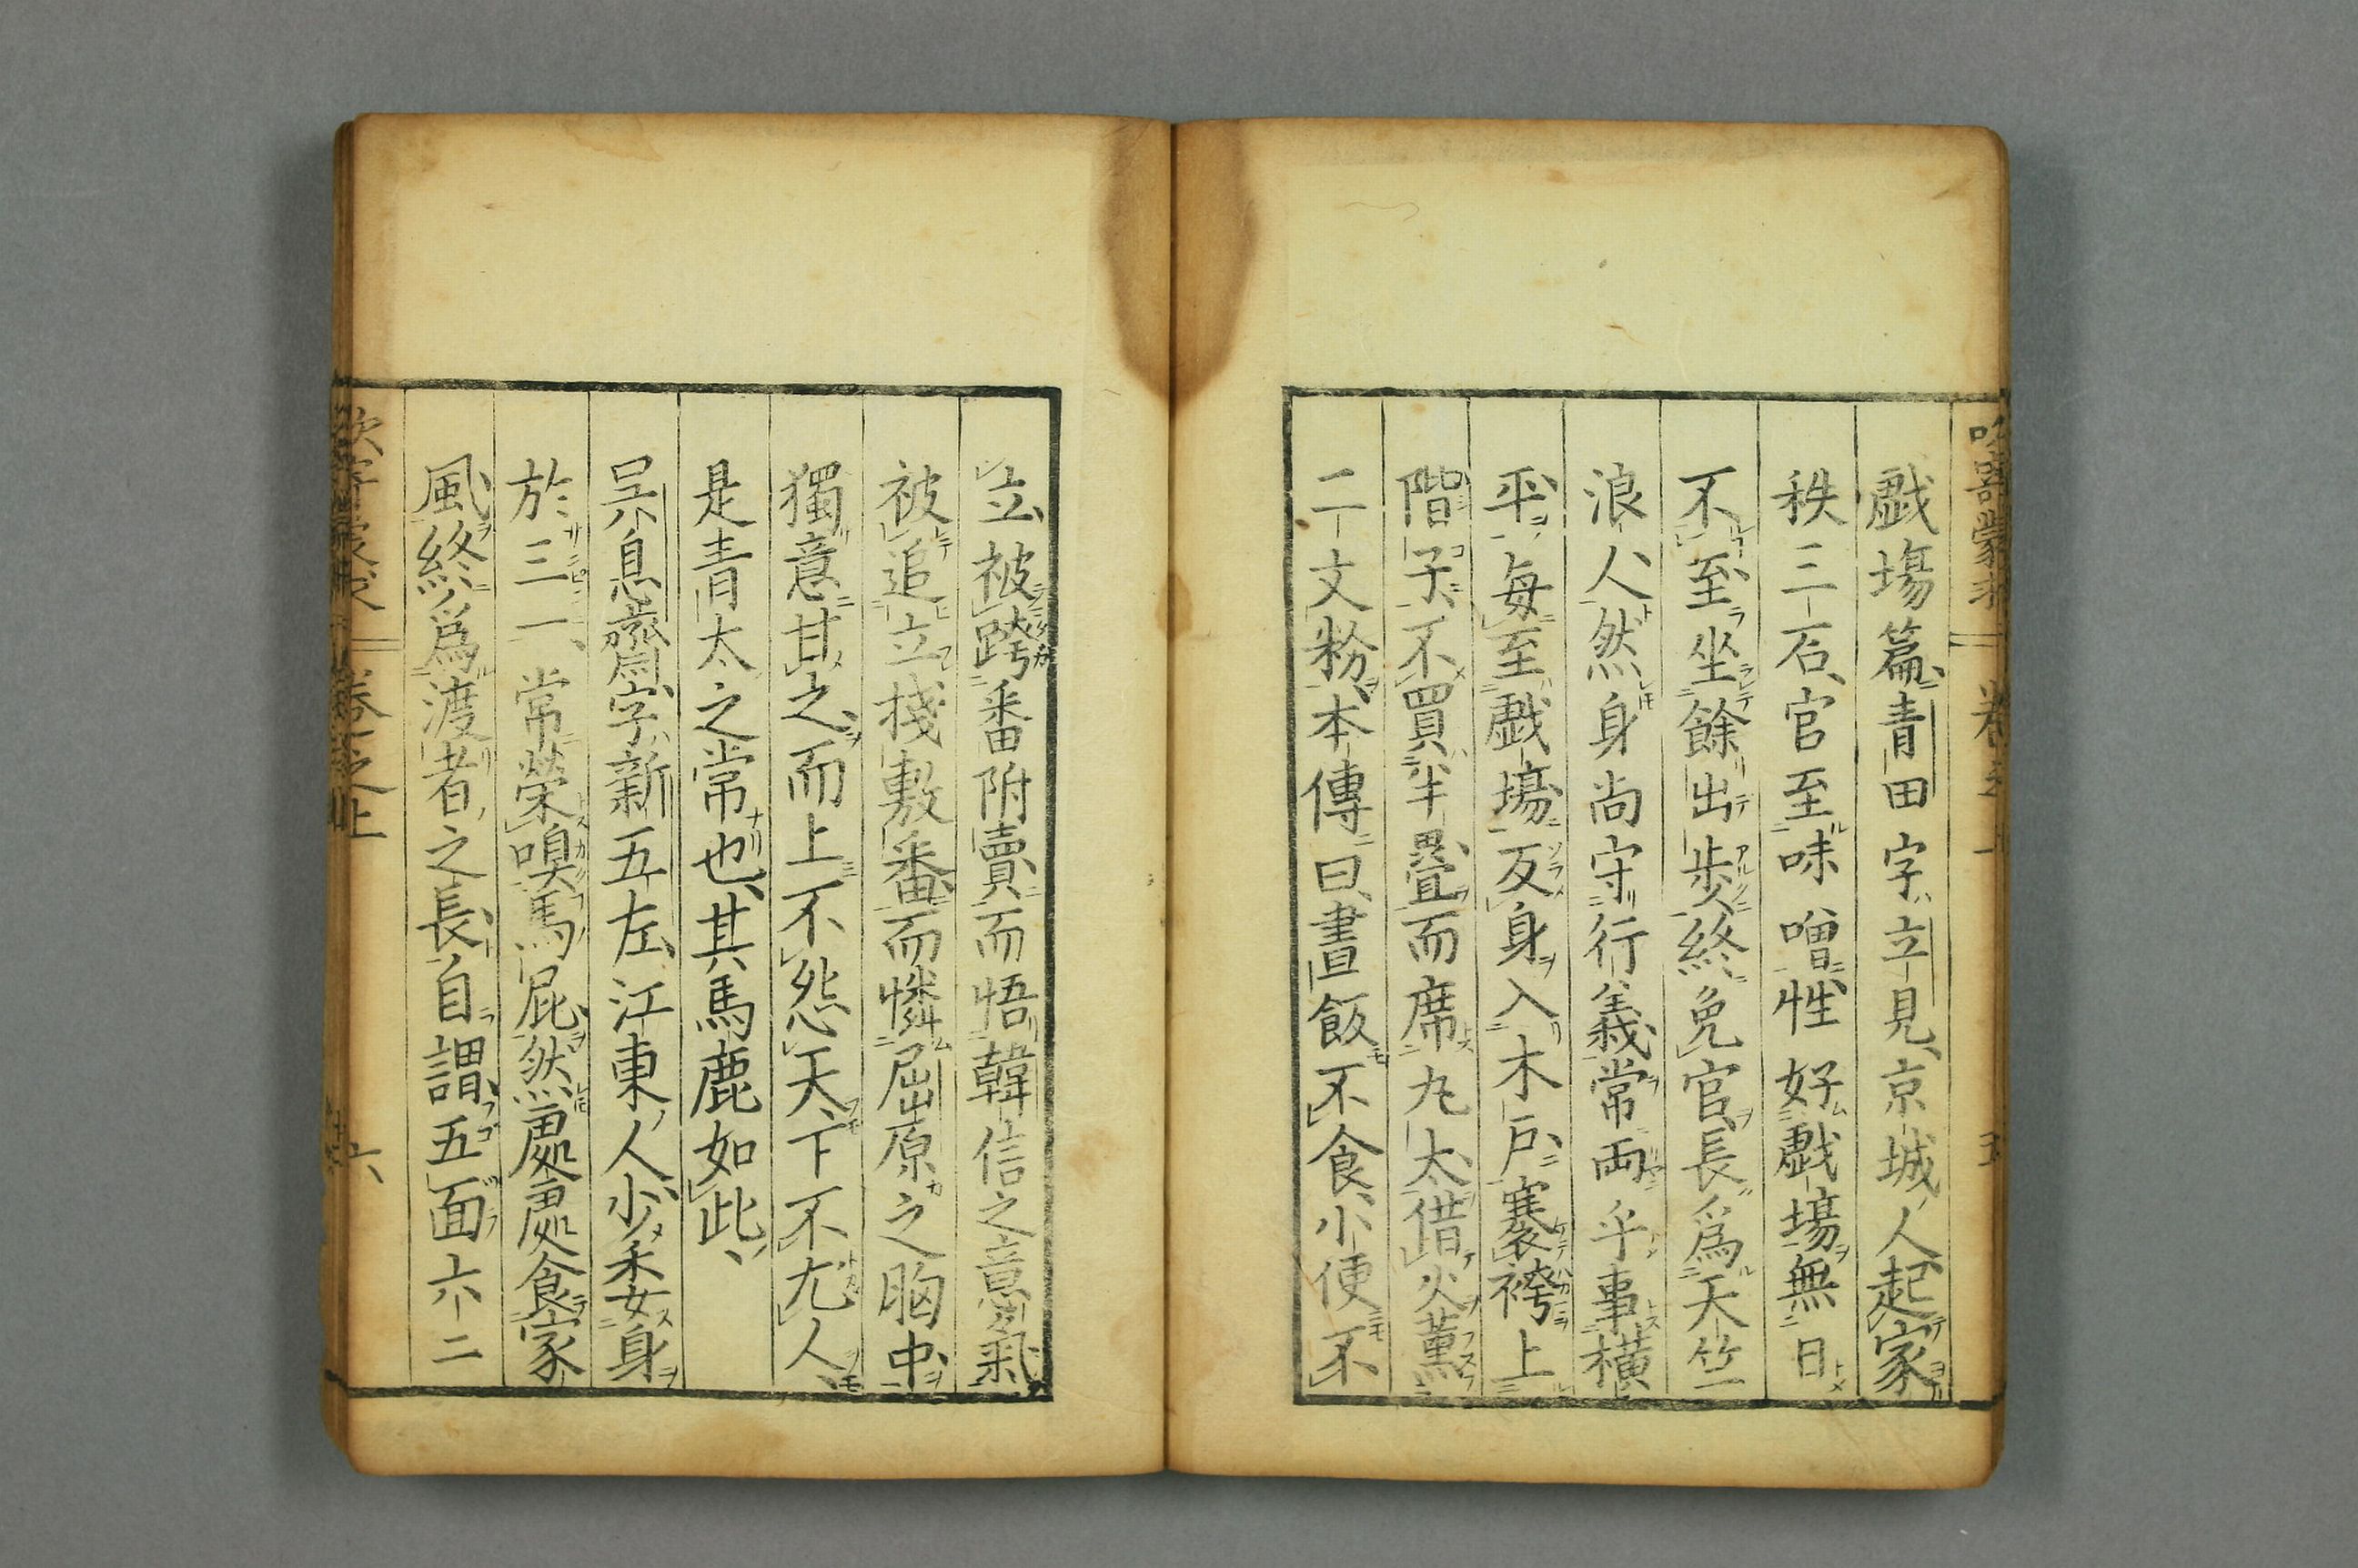 戯塲篇青田字立見京城人起家
秩三石官至味噌性好戯塲無日
不至坐餘出歩終免官長爲天竺
浪人然身尚守行義常両乎事横
平毎至戯塲反身入木戸褰袴上
階子不買半疊而席九太借火薫
二文粉本傳曰晝飯不食小便不
立被跨番附賣而悟韓信之意氣
被追立棧敷番而憐屈原之胸中
獨意甘之而上不怨天下不尤人
是青太之常也其馬鹿如此
呉息齋字新五左江東人少委身
於三一常榮嗅馬屁然處處食家
風終爲渡者之長自謂五面六二
卷之上
六